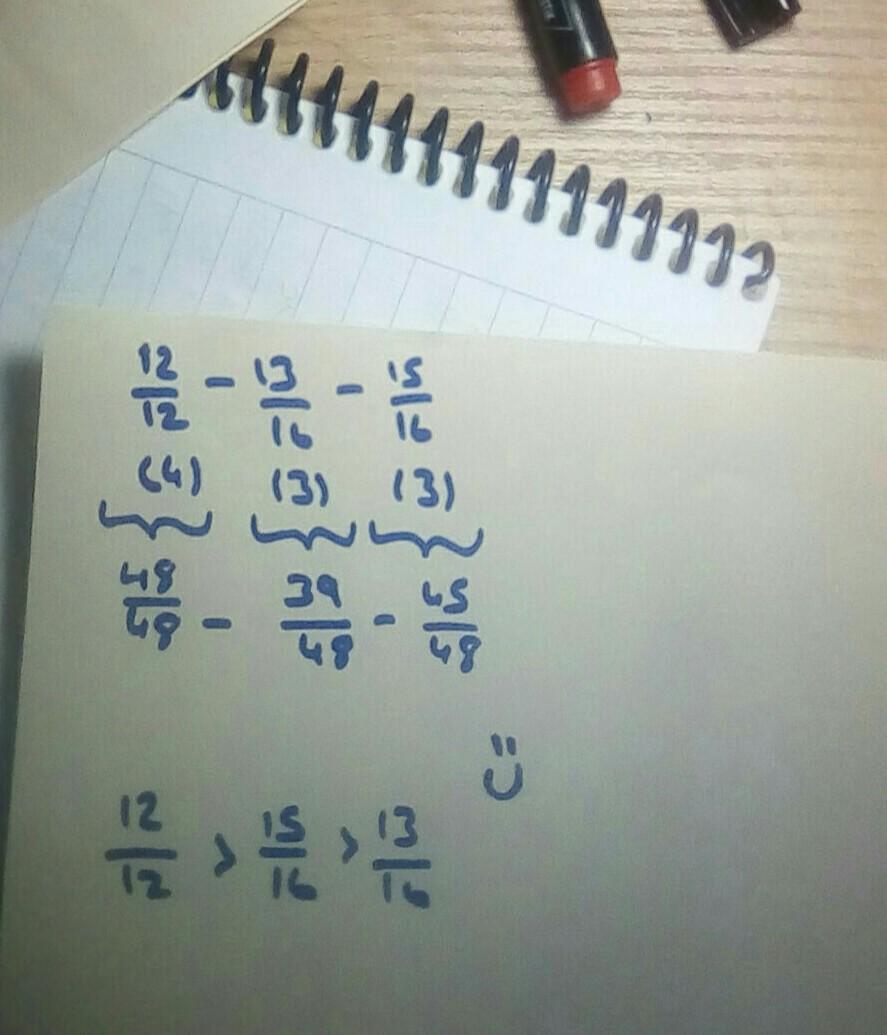 12/12 - 13/16 - 15/16
(4) (3) (3)
48/48 - 39/48 - 45/48
12/12 > 15/16 > 13/16